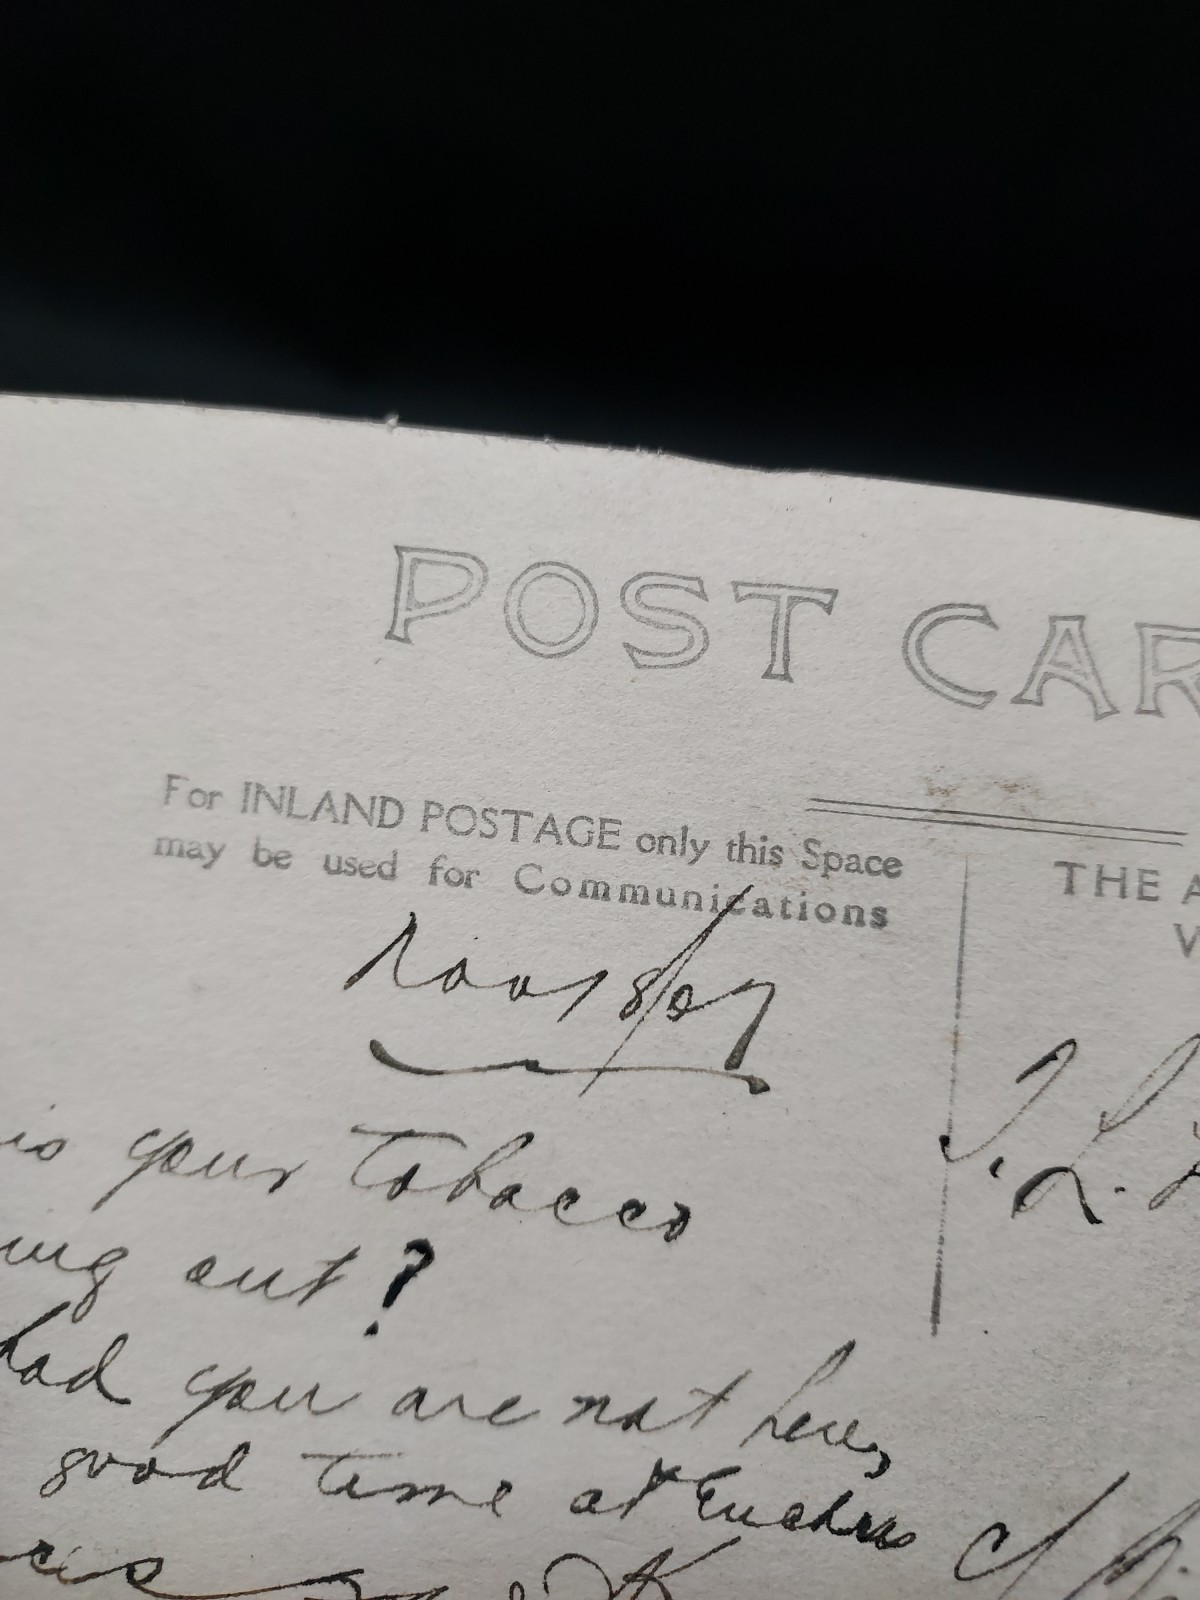 POST CAR
For INLAND POSTAGE only this Space
may be used for Communications
THE A
is your Tobacco
ing out?
had you are not here,
good time at Euchre
J. L.